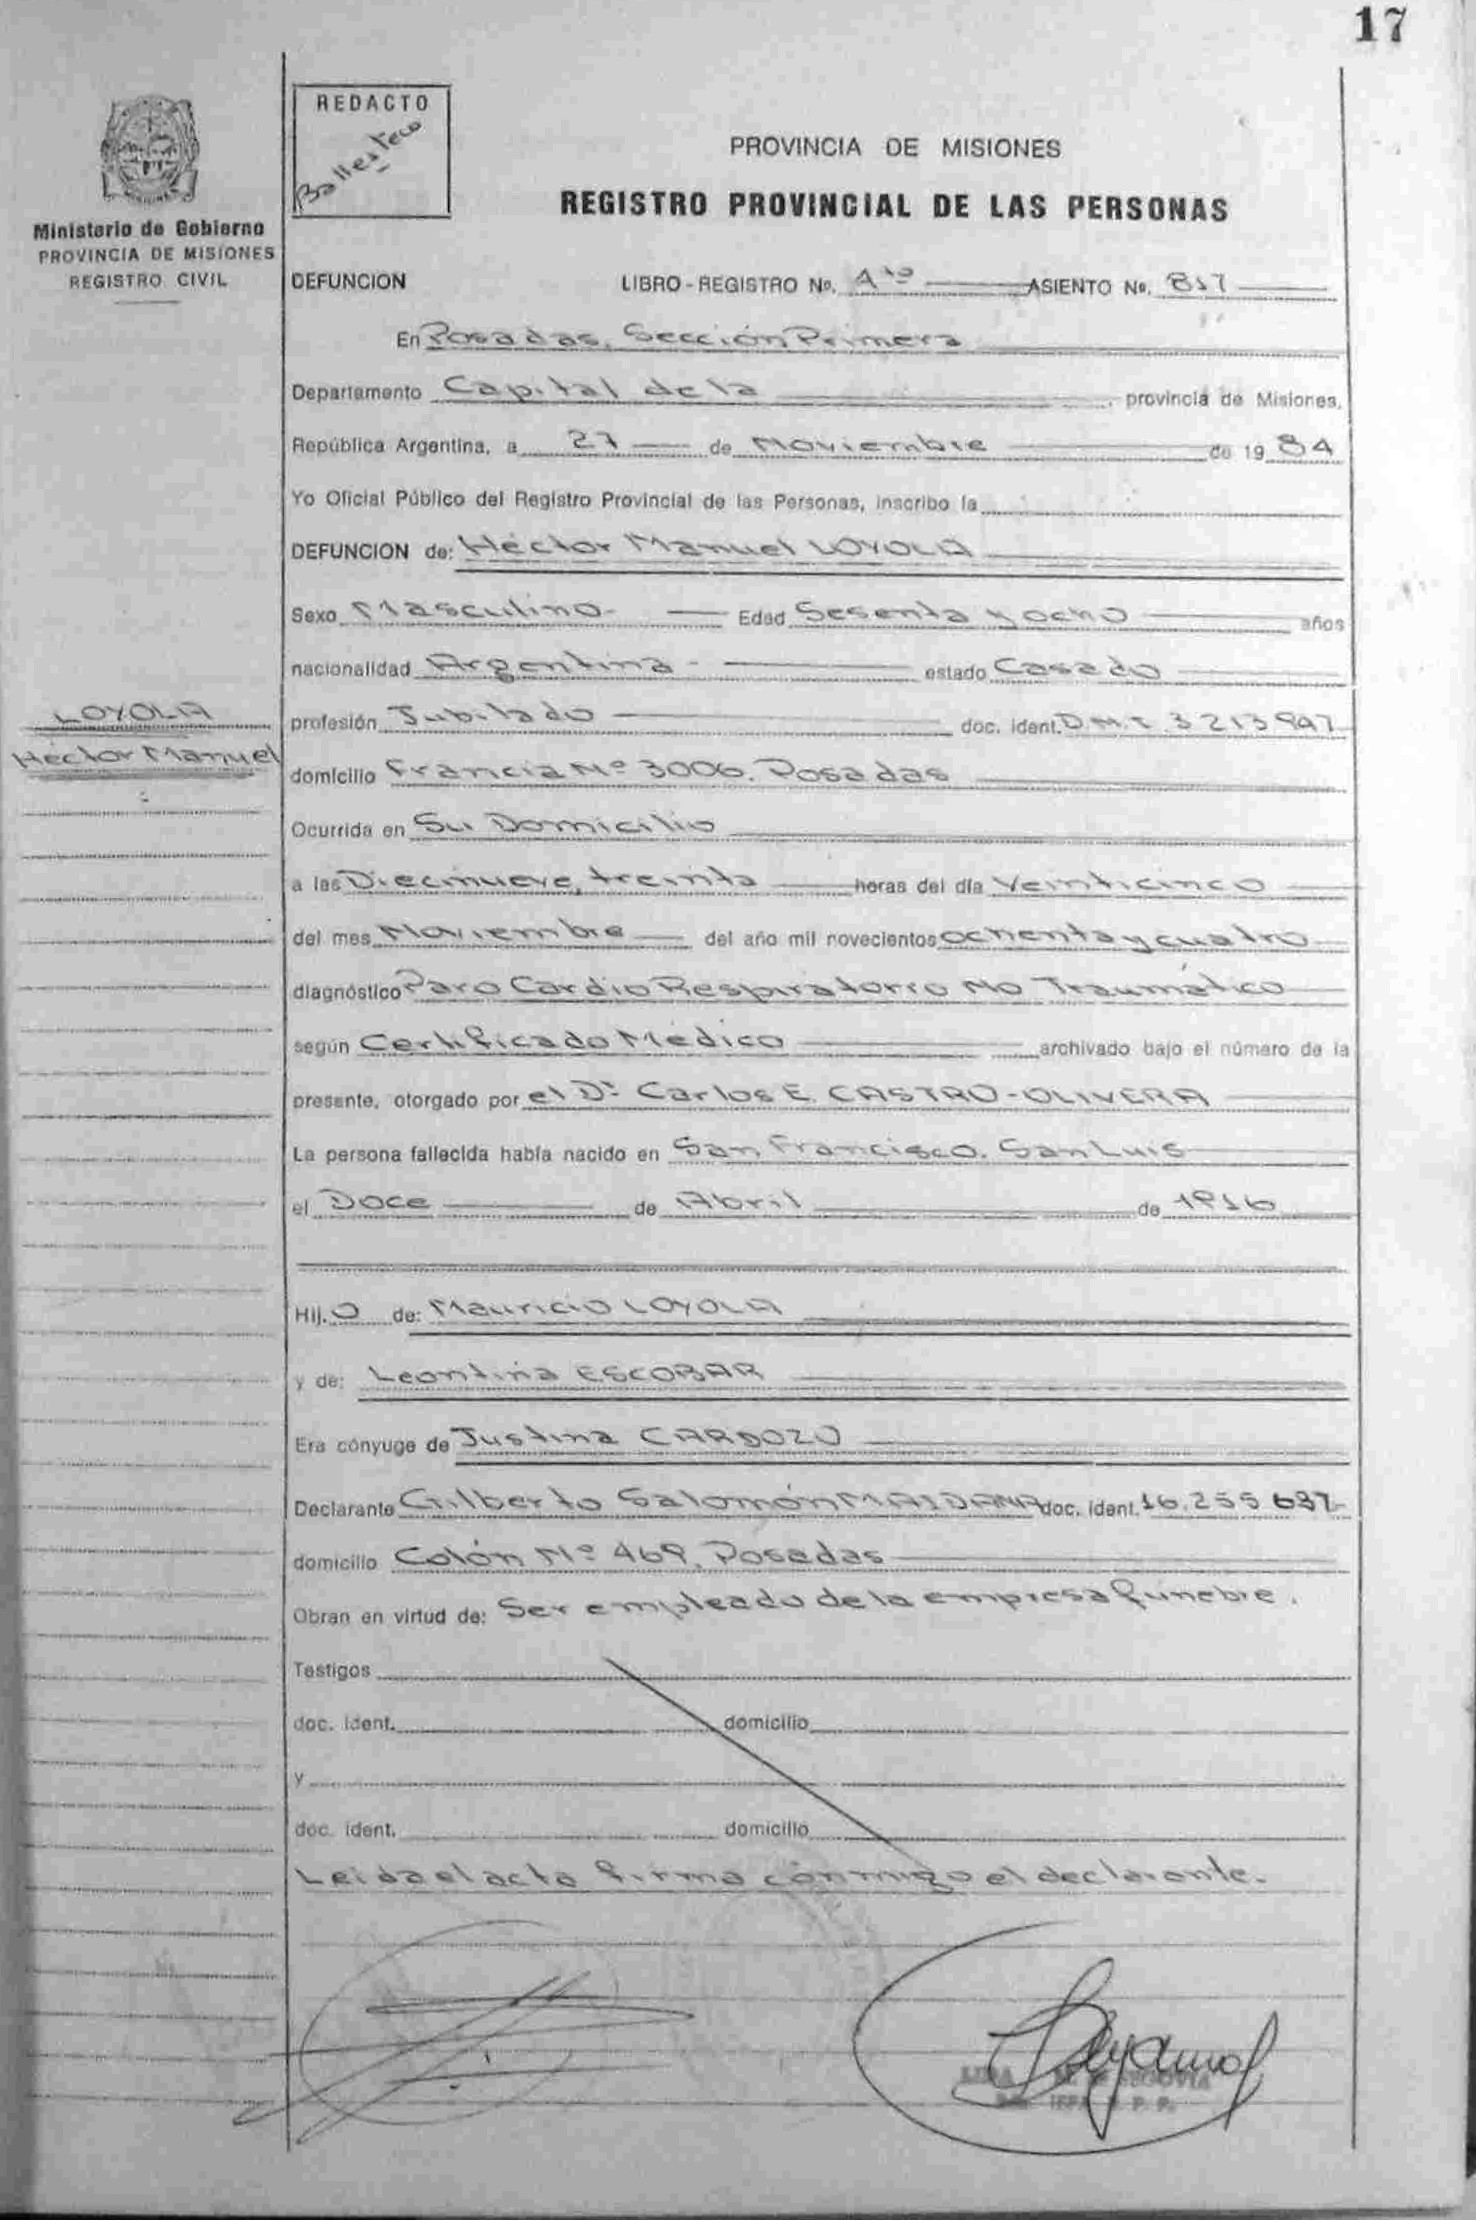 17
REDACTO
Ballestero
PROVINCIA DE MISIONES
REGISTRO PROVINCIAL DE LAS PERSONAS
Ministerio de Gobierno
PROVINCIA DE MISIONES
REGISTRO CIVIL
DEFUNCION LIBRO-REGISTRO Nº. ASIENTO Nº. 817
En Posadas, Sección Primera
Departamento Capital de la provincia de Misiones,
República Argentina, a 27 de Noviembre de 1984
Yo Oficial Público del Registro Provincial de las Personas, inscribo la
DEFUNCION de: Héctor Manuel LOYOLA
Sexo Masculino- Edad Sesenta y ocho años
nacionalidad Argentina- estado Casado
LOYOLA
Héctor Manuel
profesión Jubilado doc. ident. D.M.I. 3213947
domicilio Francia Nº 3006. Posadas
Ocurrida en Su Domicilio
a las Diecinueve, treinta horas del día Veinticinco
del mes Noviembre del año mil novecientos ochenta y cuatro
diagnóstico Paro Cardio Respiratorio No Traumático
según Certificado Médico archivado bajo el número de la
presente, otorgado por el Dr. Carlos E. CASTRO-OLIVERA
La persona fallecida había nacido en San Francisco. San Luis
el Doce de Abril de 1916
Hij.O de: Mauricio LOYOLA
y de: Leontina ESCOBAR
Era cónyuge de Justina CARDOZO
Declarante Gilberto Salomón MAIDANA doc. ident. 16.255.637-
domicilio Colón Nº 469, Posadas
Obran en virtud de: Ser empleado de la empresa fúnebre.
Testigos
doc. ident. domicilio
y
doc. ident. domicilio
Leida el acta firma conmigo el declarante.
SEGOVIA